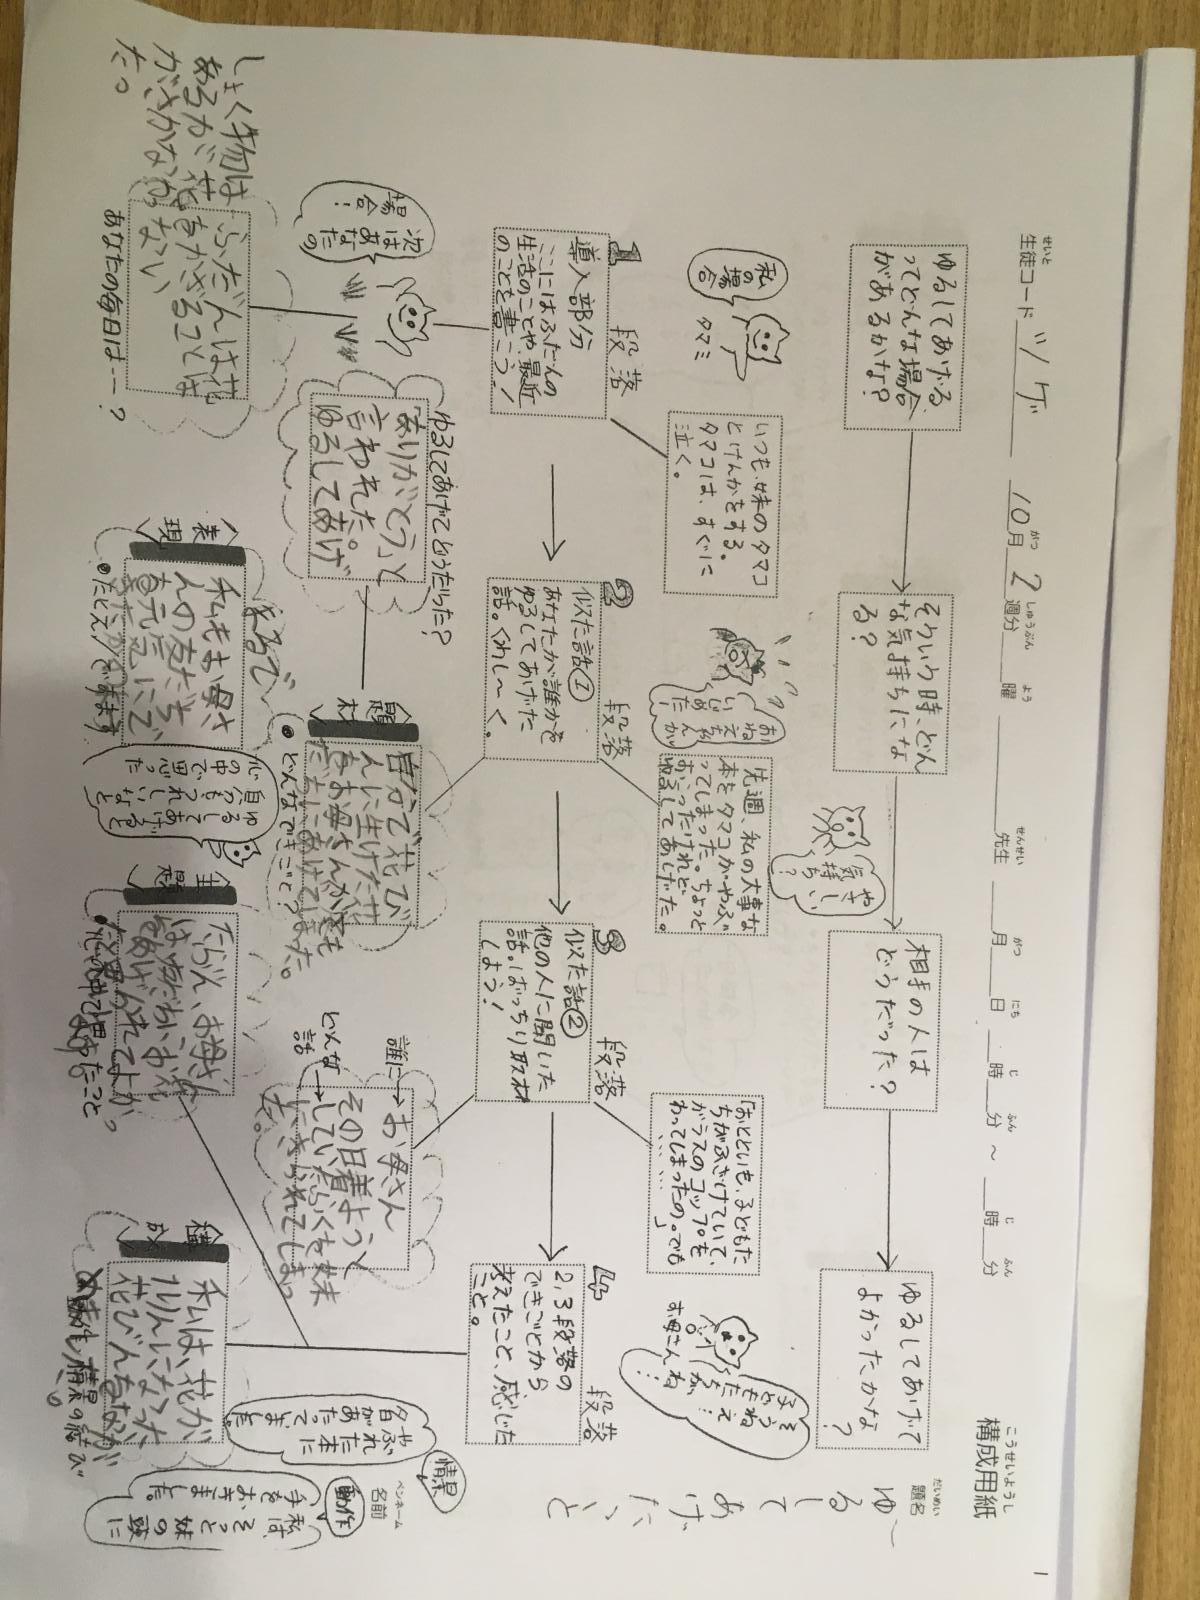 構成用紙
こうせいようし
1
せいと
生徒コード ツゲ 10月 2週分 曜 先生 月 日 時 分 ～ 時 分
がつ しゅうぶん よう せんせい がつ にち じ ふん じ ふん
だいめい
題名
ゆるして
あげたいと
ゆるしてあげる
ってどんな場合
があるかな?
そういう時、どん
な気持ちにな
る?
やさしい
気持ち?
相手の人は
どうだった?
ゆるしてあげて
よかったかな
?
私の
場合
タマミ
いつも、妹のタマコ
とけんかをする。
タマコは、すぐに
泣く。
先週、私の大事な
本をタマコがやぶ
ってしまった。ちょっと
おこったけれど
ゆるしてあげた。
「おとといも、子どもた
ちがふざけていて、
ガラスのコップを
わってしまったの。でも
………」
お母さんね!
1
段落
導入部分
ここにはふだんの
生活のことや、最近
のことを書こう!
2
段落
似た話①
あなたが誰かを
ゆるしてあげた
話。くわし～く。
3
段落
似た話②
他の人に聞いた
話。ばっちり取材
しよう!
4
段落
2,3段落の
できごとから
考えたこと、感じた
こと。
次は
あなたの
場合!
ゆるしてあげてどうだった?
「ありがとう」と
言われた。
ゆるしてあげ
〈題材〉
自分で花び
んに生けた花
をお母さんが友
だちにあげてしまった。
●どんなできごと?
誰に→お母さん
どんな話→
その日着よう
としていたふくを妹
にきられてしまっ
た。
やぶ
れた本に
名前があたってました。
情景
動作
私は、
そっと妹の頭に
手をおきました。
ペンネーム
名前
しょく物は
あるが花
がさかなかっ
た。
ふだんは花
をかざることは
ない
あなたの毎日は…?
〈表現〉
まるで
私もお母さ
んの友だちを
お元気にで
きたみたい
●たとえ
ゆるして
あげると
自分もうれしいなと
心の中で思った
〈主題〉
〈構成〉
私は、花が
花びんをなが
めました
情景の結び